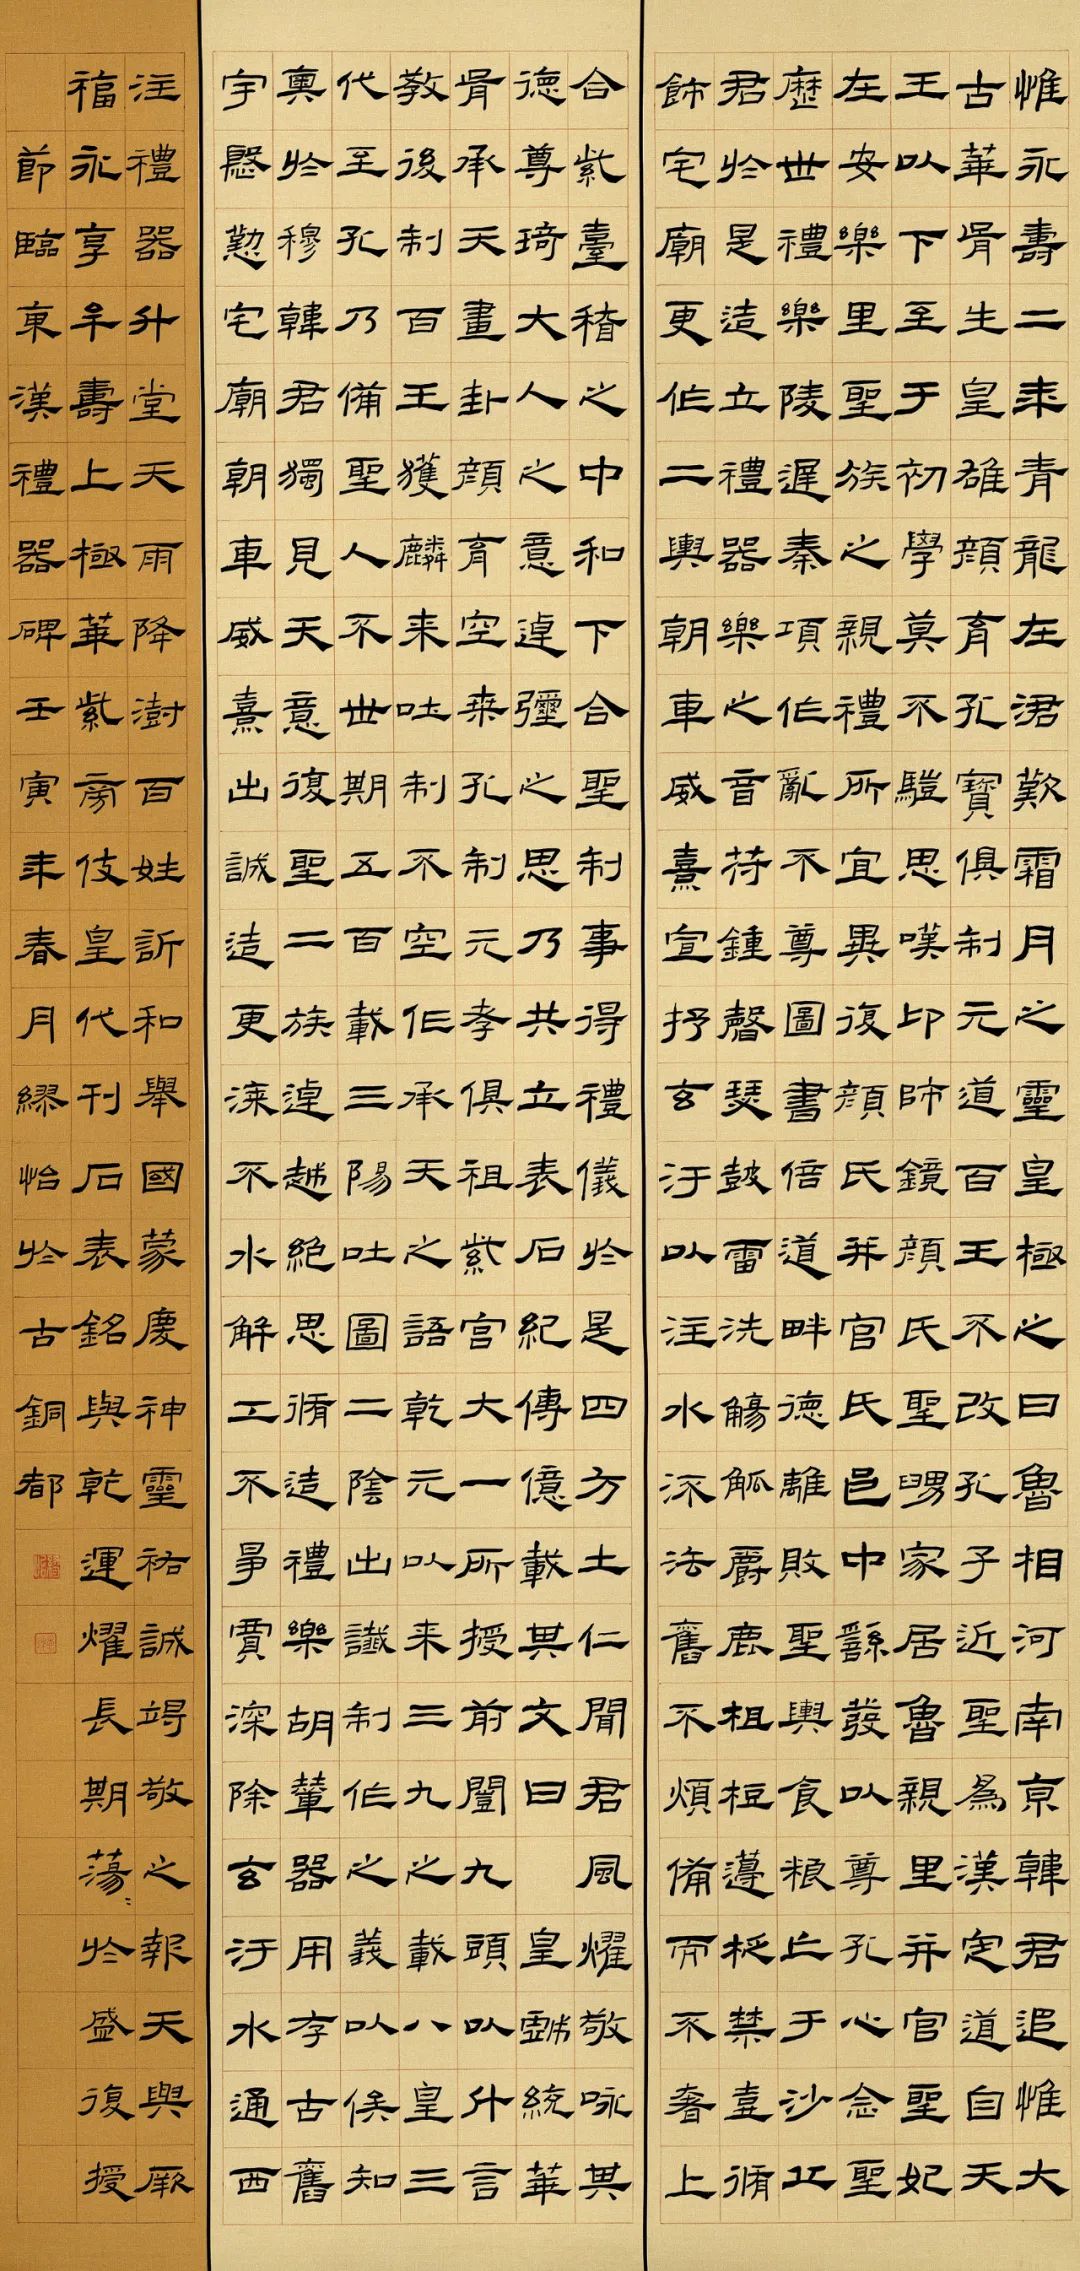 惟永壽二年青龍在涒歎霜月之靈皇極之日魯相河南京韓君追惟大
古華胥生皇雄顏育孔寶俱制元道百王不改孔子近聖為漢定道自天
王以下至于初學莫不驥思嘆卬師鏡顏氏聖舅家居魯親里并官聖妃
在安樂里聖族之親禮所宜異復顏氏并官氏邑中繇發以尊孔心念聖
歷世禮樂陵遲秦項作亂不尊圖書倍道畔德離敗聖輿食粮亡于沙丘
君於是造立禮器樂之音苻鍾磬瑟鼓雷洗觴觚爵鹿柤梪籩柉禁壺脩
飾宅廟更作二輿朝車威熹宣抒玄汙以注水流法舊不煩備而不奢上
合紫臺稽之中和下合聖制事得禮儀於是四方士仁聞君風燿敬咏其
德尊琦大人之意逴彌之思乃共立表石紀傳億載其文曰 皇戲統華
胥承天畫卦顏育空桑孔制元孝俱祖紫宮大一所授前闓九頭以什言
教後制百王獲麟來吐制不空作承天之語乾元以來三九之載八皇三
代至孔乃備聖人不世期五百載三陽吐圖二陰出讖制作之義以俟知
奧於穆韓君獨見天意復聖二族逴越絕思脩造禮樂胡輦器用存古舊
宇慇懃宅廟朝車威熹出誠造更漆不水解工不爭賈深除玄汙水通西
注禮器升堂天雨降澍百姓訢和舉國蒙慶神靈祐誠竭敬之報天與厥
福永享牟壽上極華紫旁伎皇代刊石表銘與乾運燿長期蕩〻於盛復授
節臨東漢禮器碑壬寅年春月繆怡於古銅都